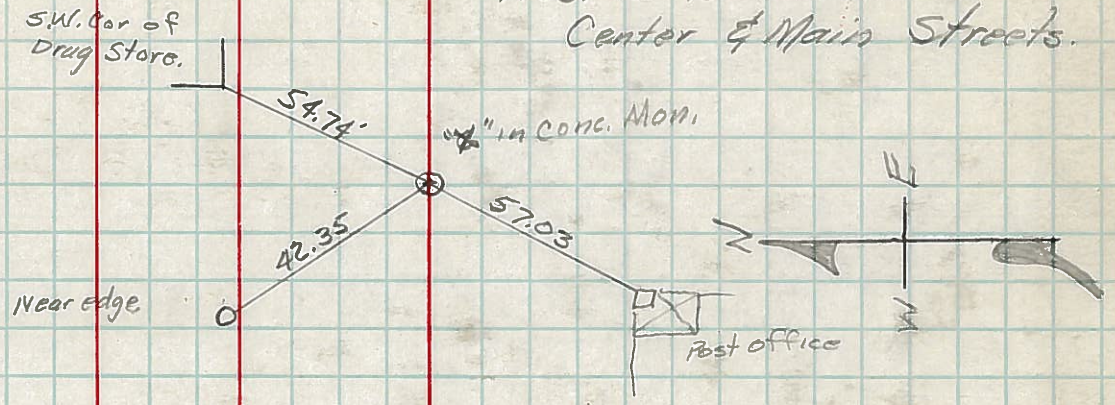 S.W. Cor of
Drug Store.
Center & Main Streets.
54.74'
"X" in Conc. Mon.
57.03
42.35
Near edge
Post office
N
E
W